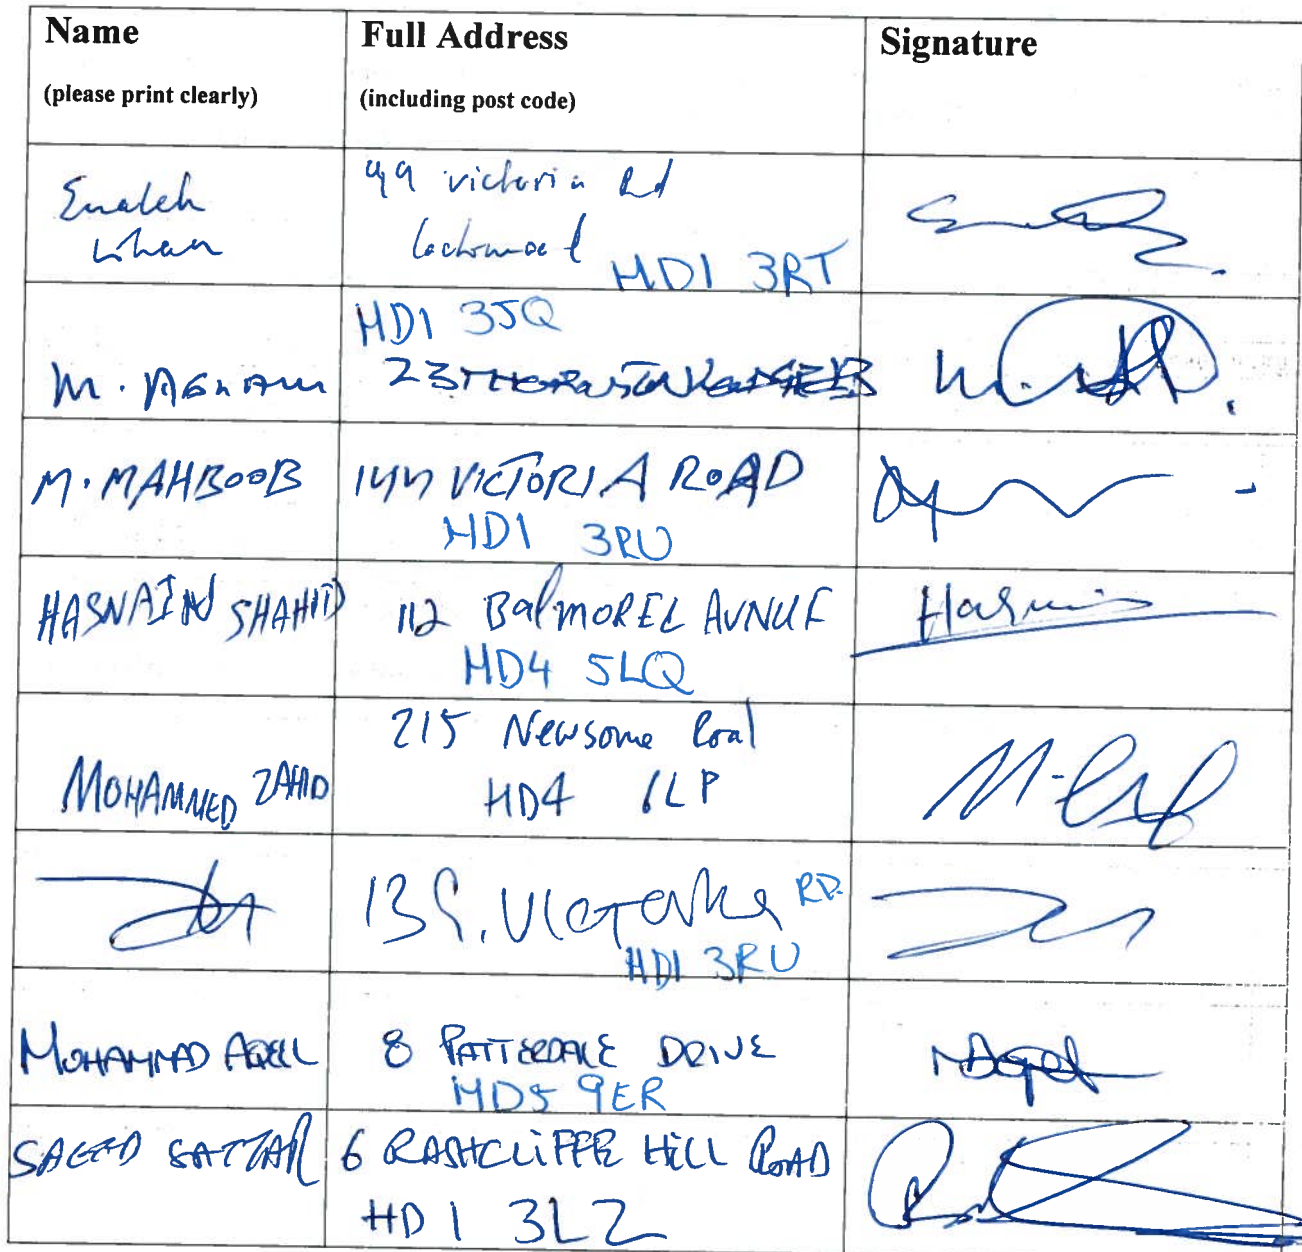 Name
(please print clearly)
Full Address
(including post code)
Signature
Khan
99 Victoria Rd
Lockwood
HD1 3RT
HD1 3JQ
M.
23
M. MAHBOOB
144 VICTORIA ROAD
HD1 3RU
HASNAIN SHAHID
112 BalMOREL AVNUE
HD4 5LQ
Hasnain
MOHAMMED ZAHID
215 Newsome Road
HD4 1LP
139, Victoria RD.
HD1 3RU
MOHAMMAD AQEEL
8 PATTERDALE DRIVE
HD5 9ER
SAEED SATTAR
6 RASHCLIFFE HILL ROAD
HD1 3LZ